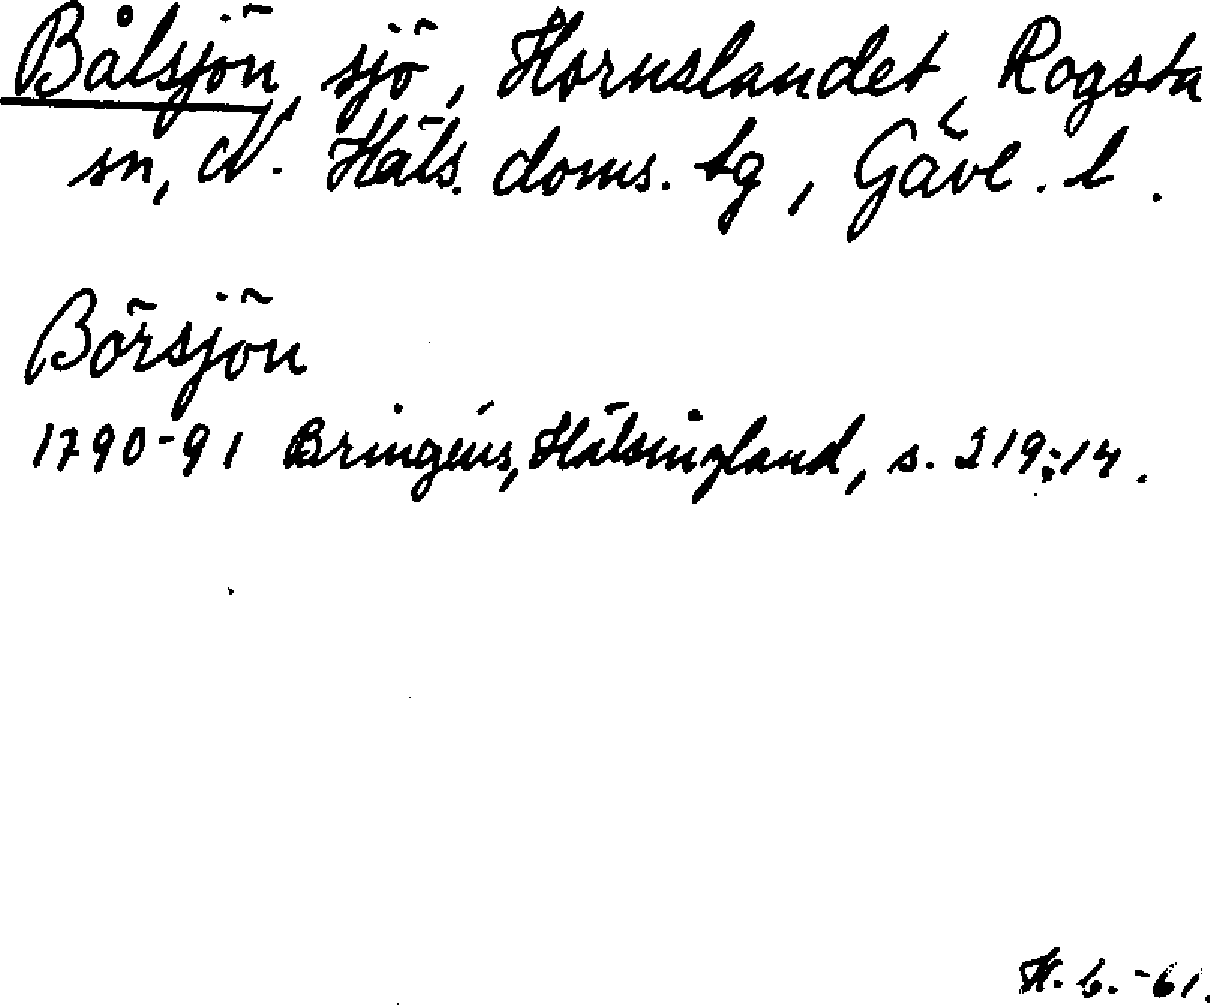 Bålsjön, sjö, Hornslandet, Rogsta
sn, N. Häls. doms. tg, Gävl. l.
Börsjön
1790-91 Bringéus, Hälsingland, s. 219:14.
H. G. -61.